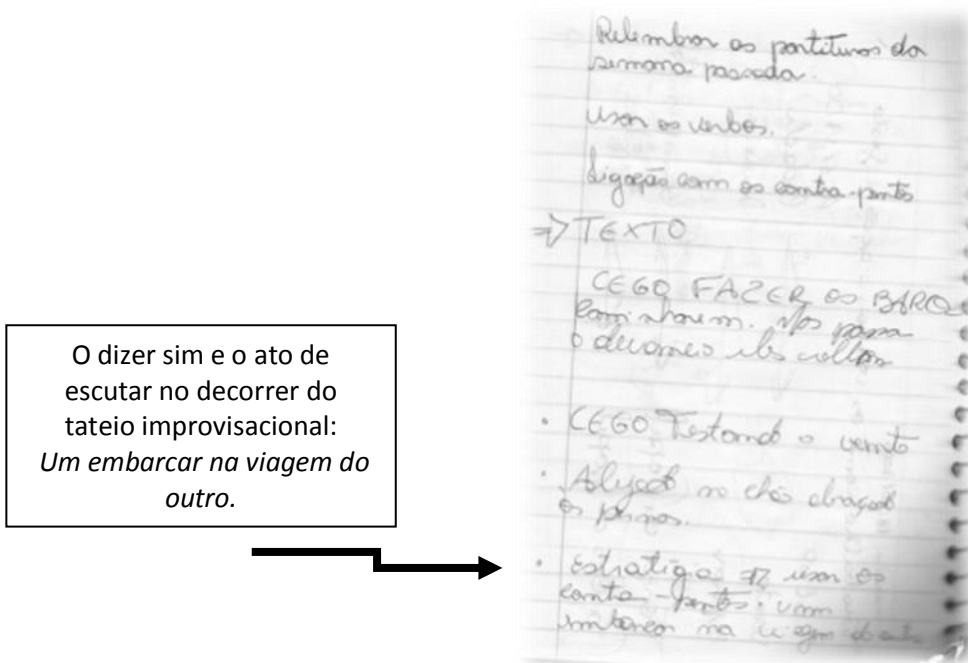 O dizer sim e o ato de
escutar no decorrer do
tateio improvisacional:
Um embarcar na viagem do
outro.
Relembrar as partituras da
semana passada.
usar os verbos.
Ligação com os contra-pontos
⇒ TEXTO
CEGO FAZER os BARCO
caminharem. Nos passa
o devaneio eles voltam
• CEGO Testando o vento
• no chão
os
• Estratégia ⇒ usar os
contra-pontos. um
embarcar na viagem do outro